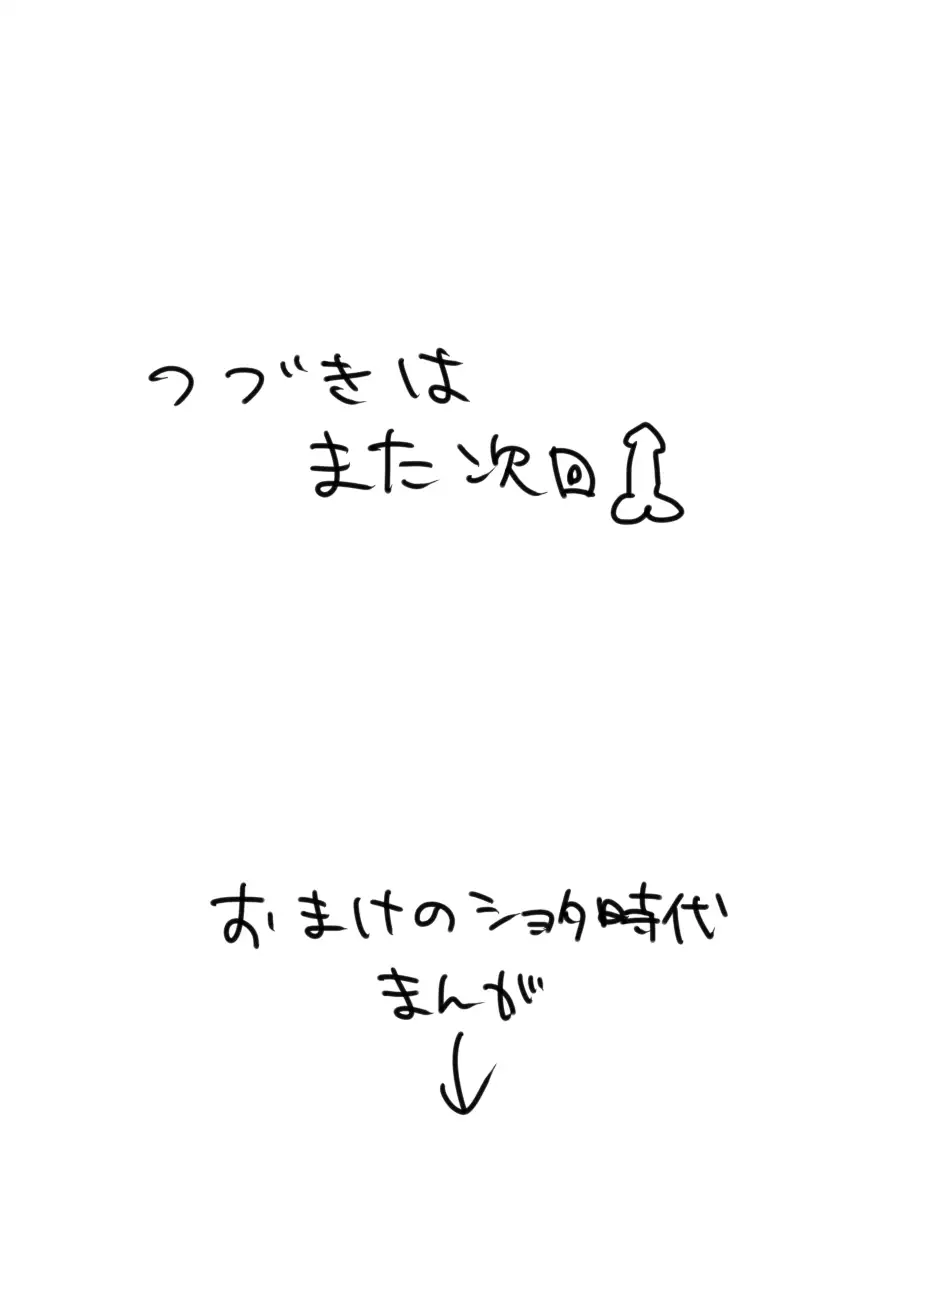 つづきは
また次回
おまけのショタ時代
まんが